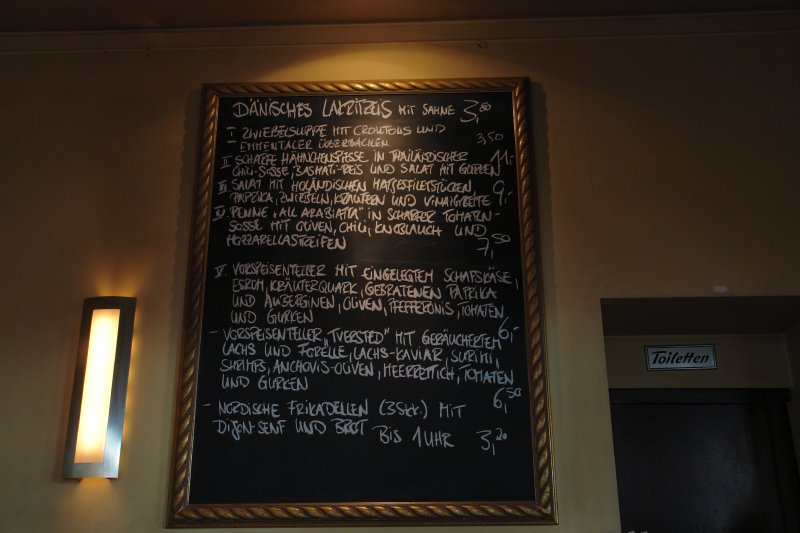 DÄNISCHES LAKRITZEIS MIT SAHNE 3,80
I ZWIEBELSUPPE MIT CROUTONS UND
EMMENTALER ÜBERBACKEN 3,50
II SCHARFE HÄHNCHENSPIESSE IN THAILÄNDISCHER
CHILI-SOSSE, BASMATI-REIS UND SALAT MIT GURKEN 11,-
III SALAT MIT HOLÄNDISCHEN MATJESFILETSTÜCKEN,
PAPRIKA, ZWIEBELN, KRÄUTERN UND VINAIGRETTE 9,-
IV PENNE "ALL ARABIATTA" IN SCHARFER TOMATEN-
SOSSE MIT OLIVEN, CHILI, KNOBLAUCH UND
MOZZARELLASTREIFEN 7,50
V. VORSPEISENTELLER MIT EINGELEGTEM SCHAFSKÄSE,
ESROM, KRÄUTERQUARK, GEBRATENEN PAPRIKA
UND AUBERGINEN, OLIVEN, PFEFFERONIS, TOMATEN
UND GURKEN 6,-
- VORSPEISENTELLER „TVERSTED" MIT GERÄUCHERTEM
LACHS UND FORELLE, LACHS-KAVIAR, SURIMI,
SHRIMPS, ANCHOVIS-OLIVEN, MEERRETTICH, TOMATEN
UND GURKEN 6,50
- NORDISCHE FRIKADELLEN (3 Stk.) MIT
DIJON-SENF UND BROT BIS 1 UHR 3,20
Toiletten